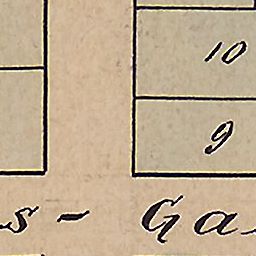 10
9
s - Ga